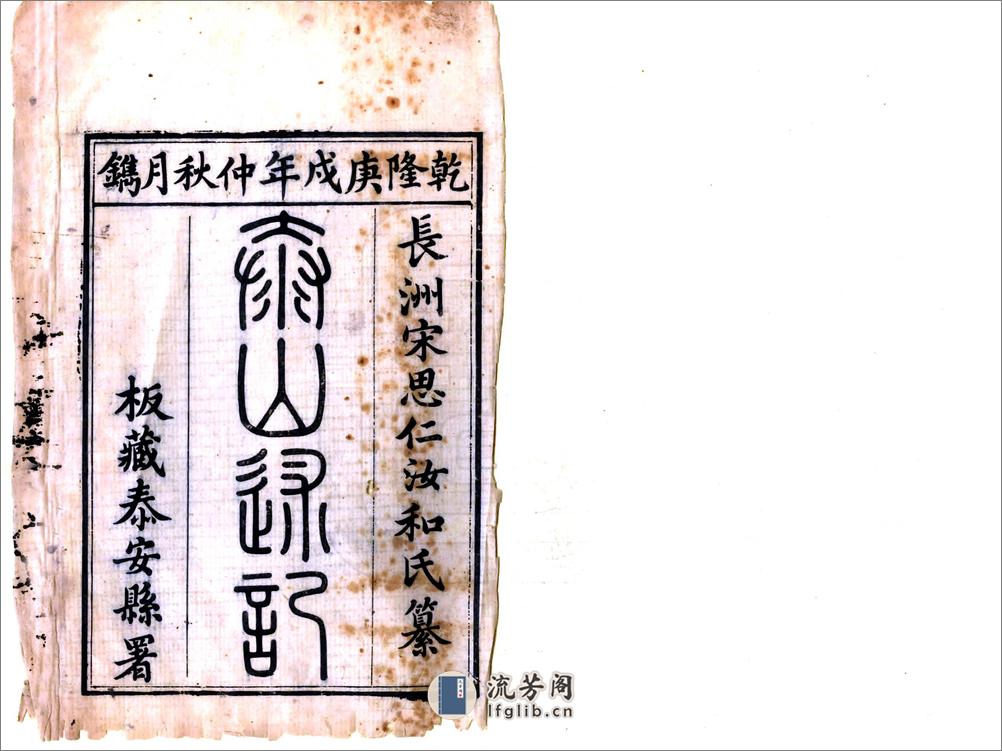 乾隆庚戌年仲秋月鐫
長洲宋思仁汝和氏纂
泰山述記
板藏泰安縣署
流芳阁
lfglib.cn